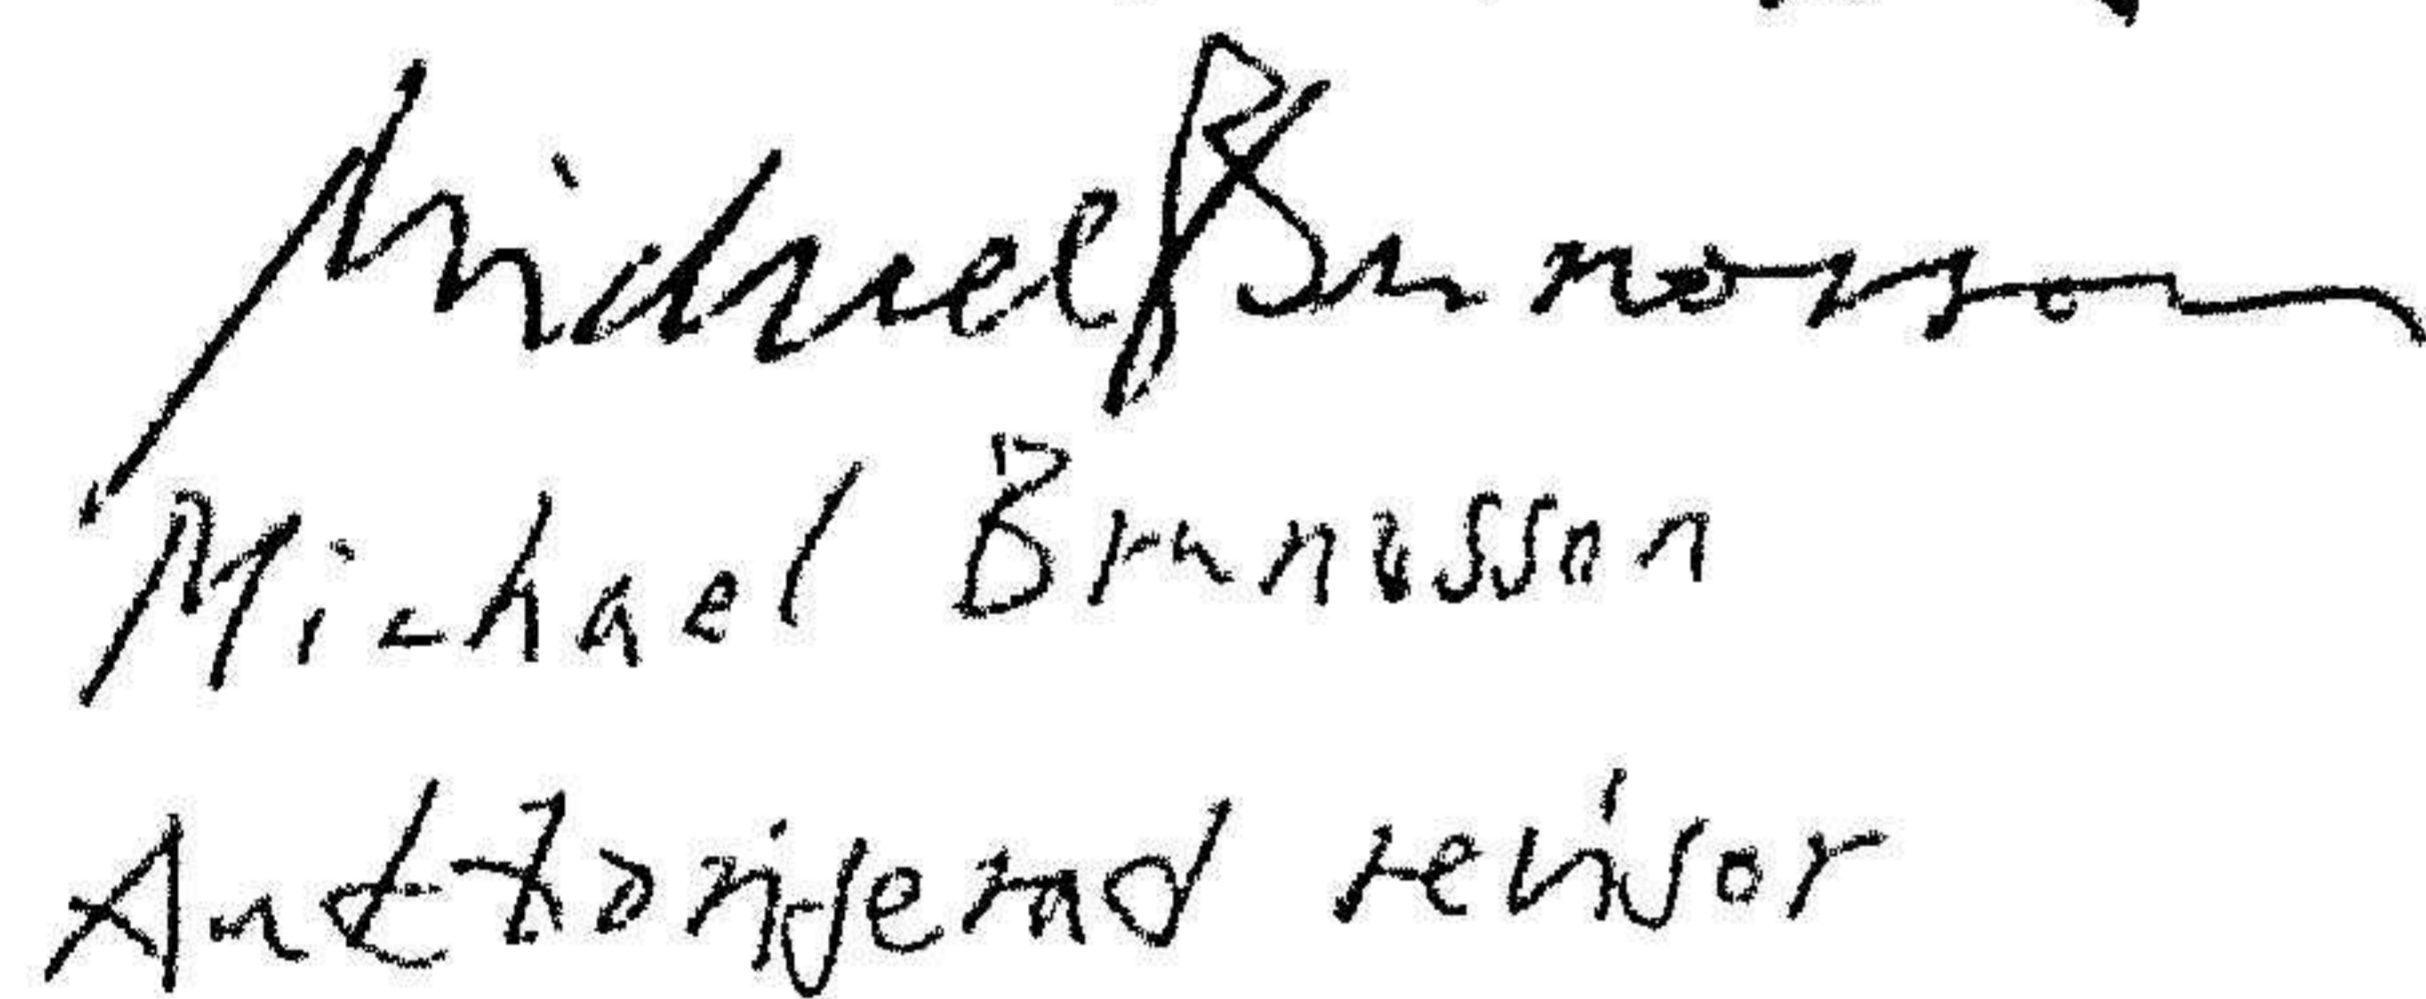 Michael Brunosson
Michael Brunosson
Auktoriserad revisor